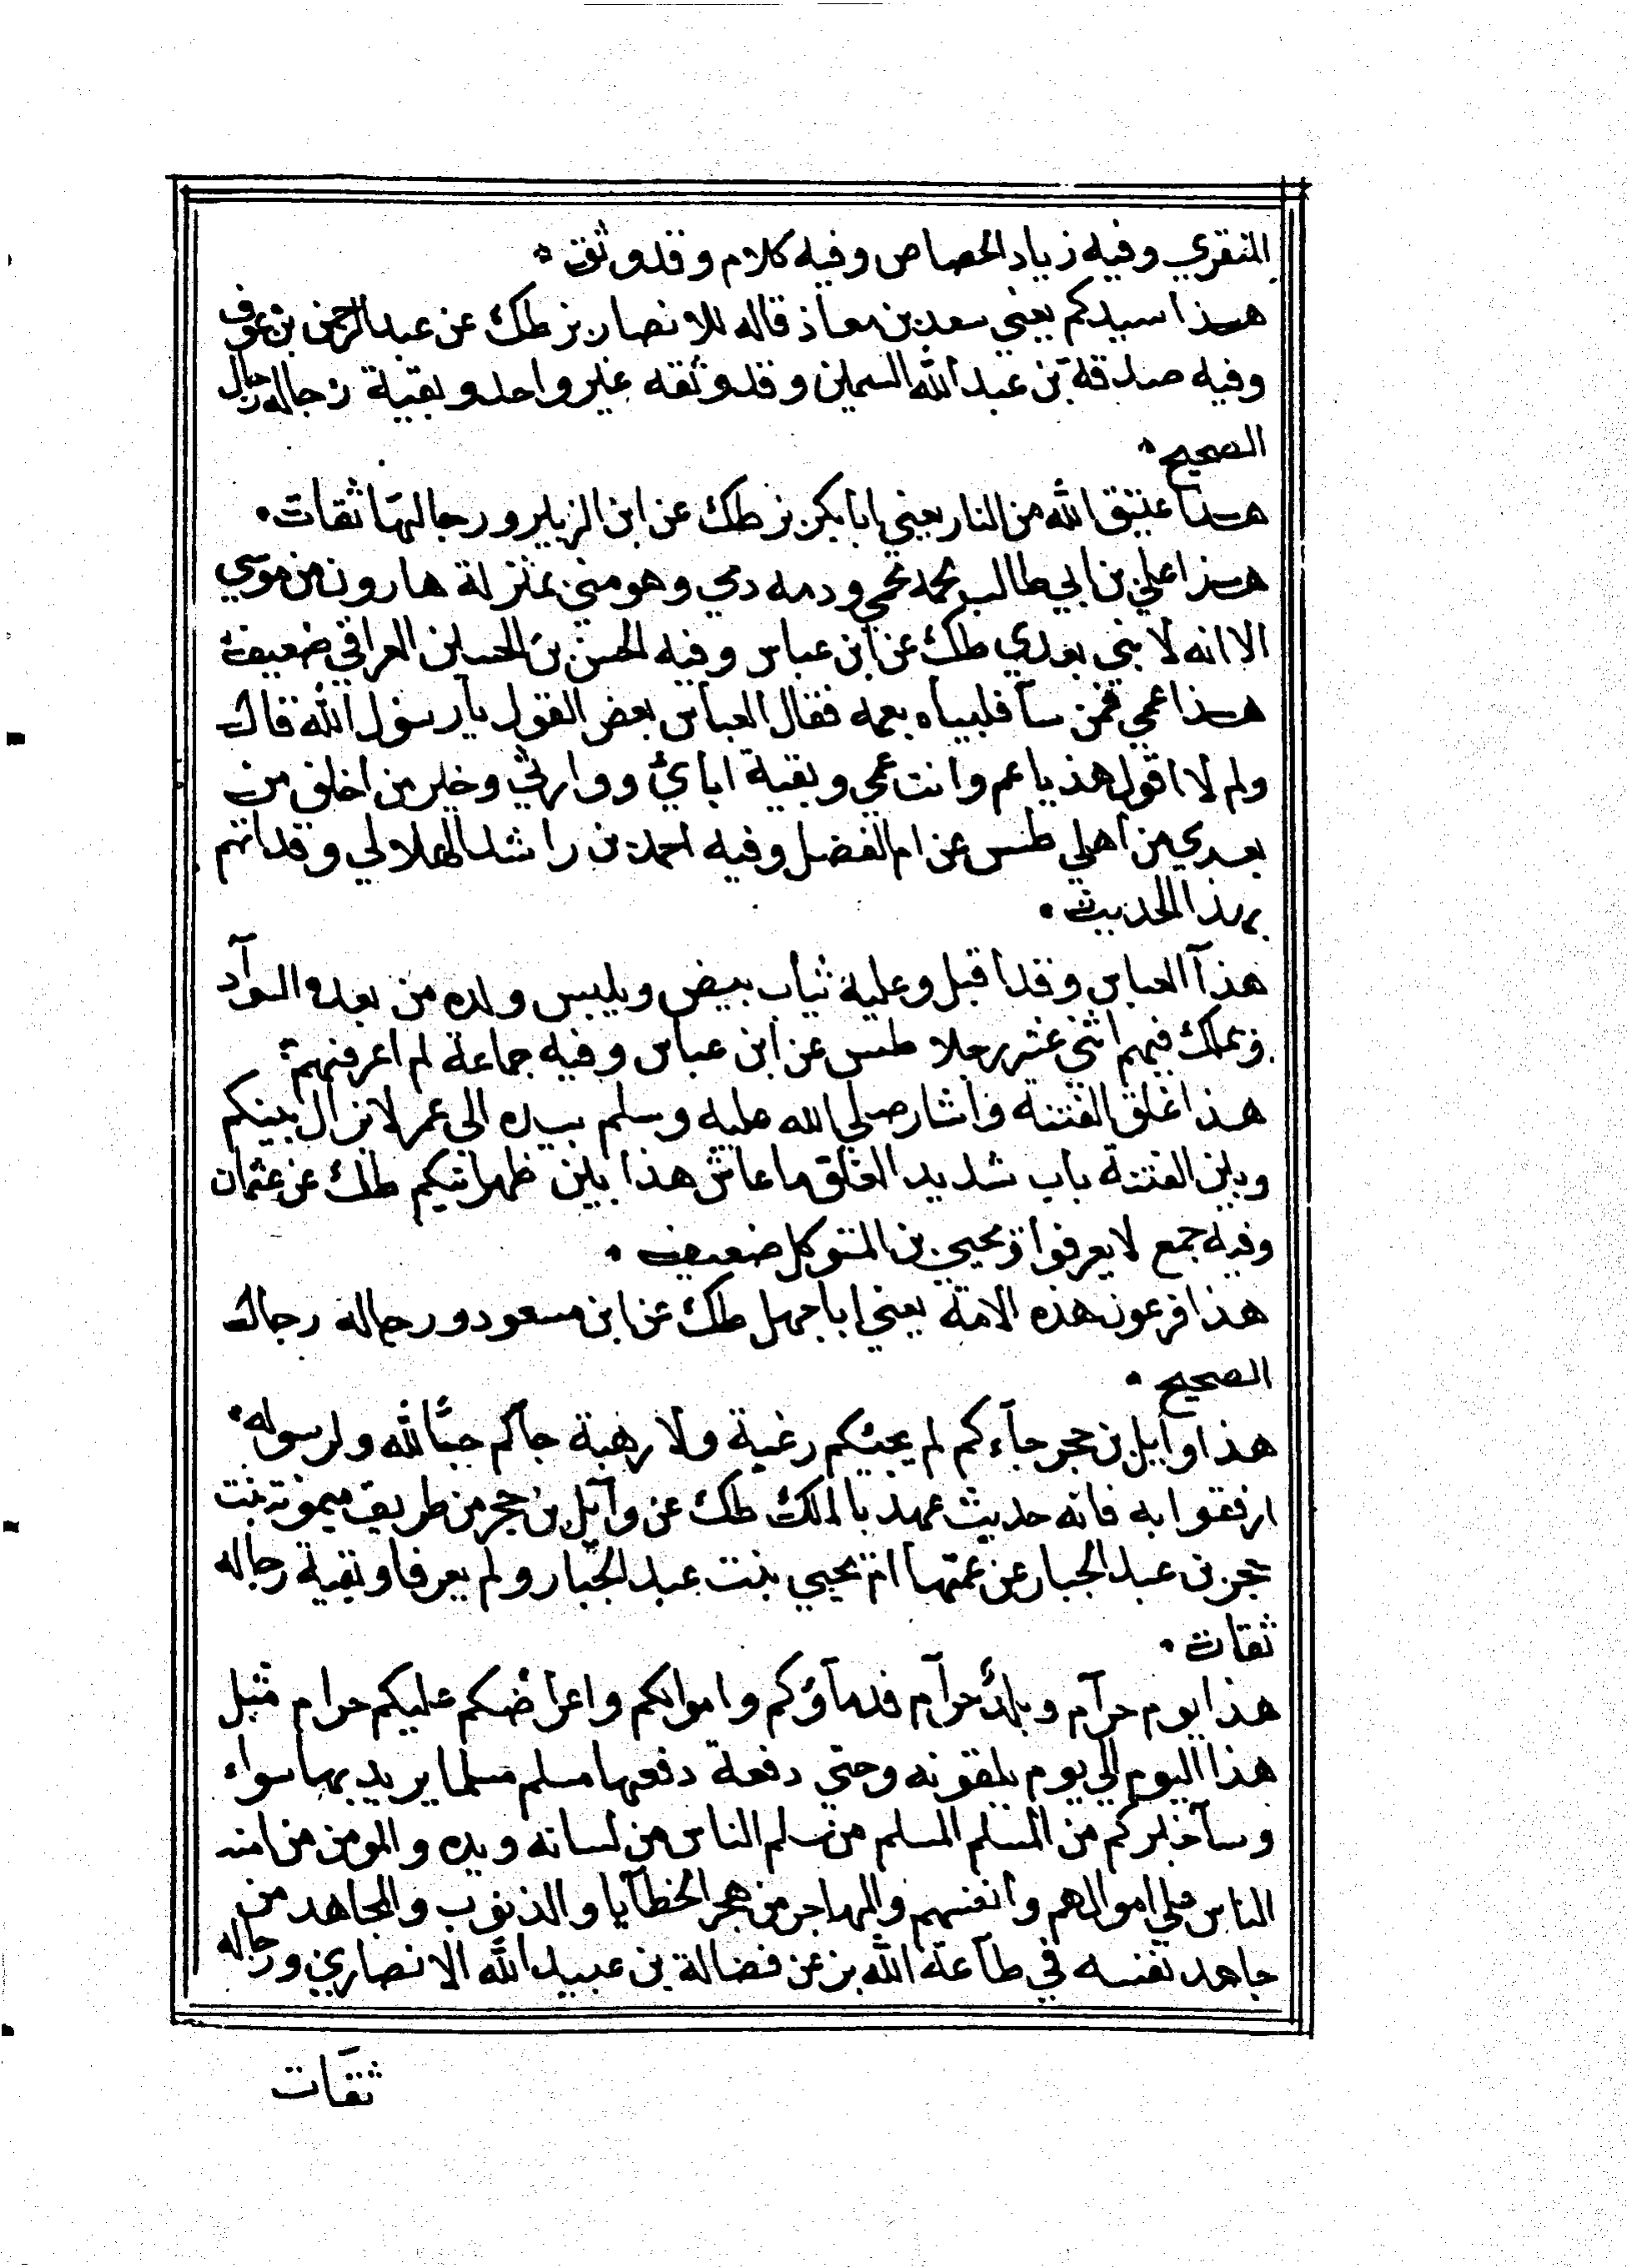 المنقري وفيه زياد الحصاص وفيه كلام وقد وثق
هذا سيدكم يعني سعد بن معاذ قاله للانصار بز طك عن عبد الرحمن بن عوف
وفيه صدقة بن عبد الله السمين وقد وثقه غير واحد وبقية رجاله رجال
الصحيح
هذا عتيق الله من النار يعني ابا بكر بز طك عن ابن الزبير ورجالهما ثقات
هذا علي بن ابي طالب لحمه لحمي ودمه دمي وهو مني بمنزلة هارون من موسي
الا انه لا نبي بعدي طك عن ابن عباس وفيه الحسن بن الحسين العرافي ضعيف
هذا عمي فمن شآ فليباه بعمه فقال العباس بعض القول يا رسول الله قال
ولم لا اقول هذ يا عم وانت عمي وبقية ابائ ووارثي وخير من اخلف من
بعدي من اهلي طس عن ام الفضل وفيه احمد بن راشد الهلالي وقد اتهم
بهذا الحديث
هذا العباس وقد اقبل وعليه ثياب بيض ويلبس ولده من بعده السوآد
ويملك فيهم اثني عشر رجلا طس عن ابن عباس وفيه جماعة لم اعرفهم
هذا غلق الفتنة واشار صلي الله عليه وسلم بيده الى عمر لا يزال بينكم
وبين الفتنة باب شديد الغلق ما عاش هذا بين ظهرانيكم طك عن عثمان
وفيه جمع لا يعرفوا ويحيي بن المتوكل ضعيف
هذا فرعون هذه الامة يعني ابا جهل طك عن ابن مسعود ورجاله رجال
الصحيح
هذا وايل بن حجر جآءكم لم يجئكم رغبة ولا رهبة جآكم حبًّا لله ولرسوله
ارفقوا به فانه حديث عهد بالملك طك عن وآيل بن حجر من طريق ميمونة بنت
حجر بن عبد الجبار عن عمتها ام يحيي بنت عبد الجبار ولم يعرفا وبقية رجاله
ثقات
هذا يوم حرآم وبلد حرآم فدمآؤكم واموالكم واعراضكم عليكم حرام مثل
هذا اليوم الي يوم يلقونه وحتى دفعة دفعها مسلم مسلما يريد بها سواء
وسآخبركم من المسلم المسلم من سلم الناس من لسانه ويده والمومن من امنه
الناس علي اموالهم وانفسهم والمهاجر من هجر الخطآيا والذنوب والمجاهد من
جاهد نفسه في طاعة الله بز عن فضالة بن عبيد الله الانصاري ورجاله
ثقات